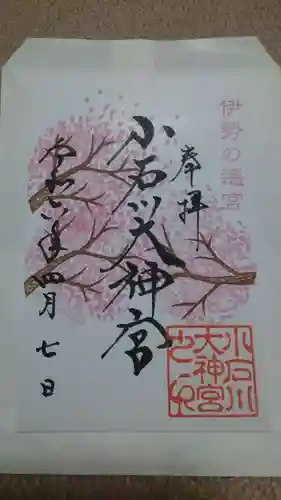 伊勢の遙宮
奉拝
小石川大神宮
令和六年四月七日
小石川
大神宮